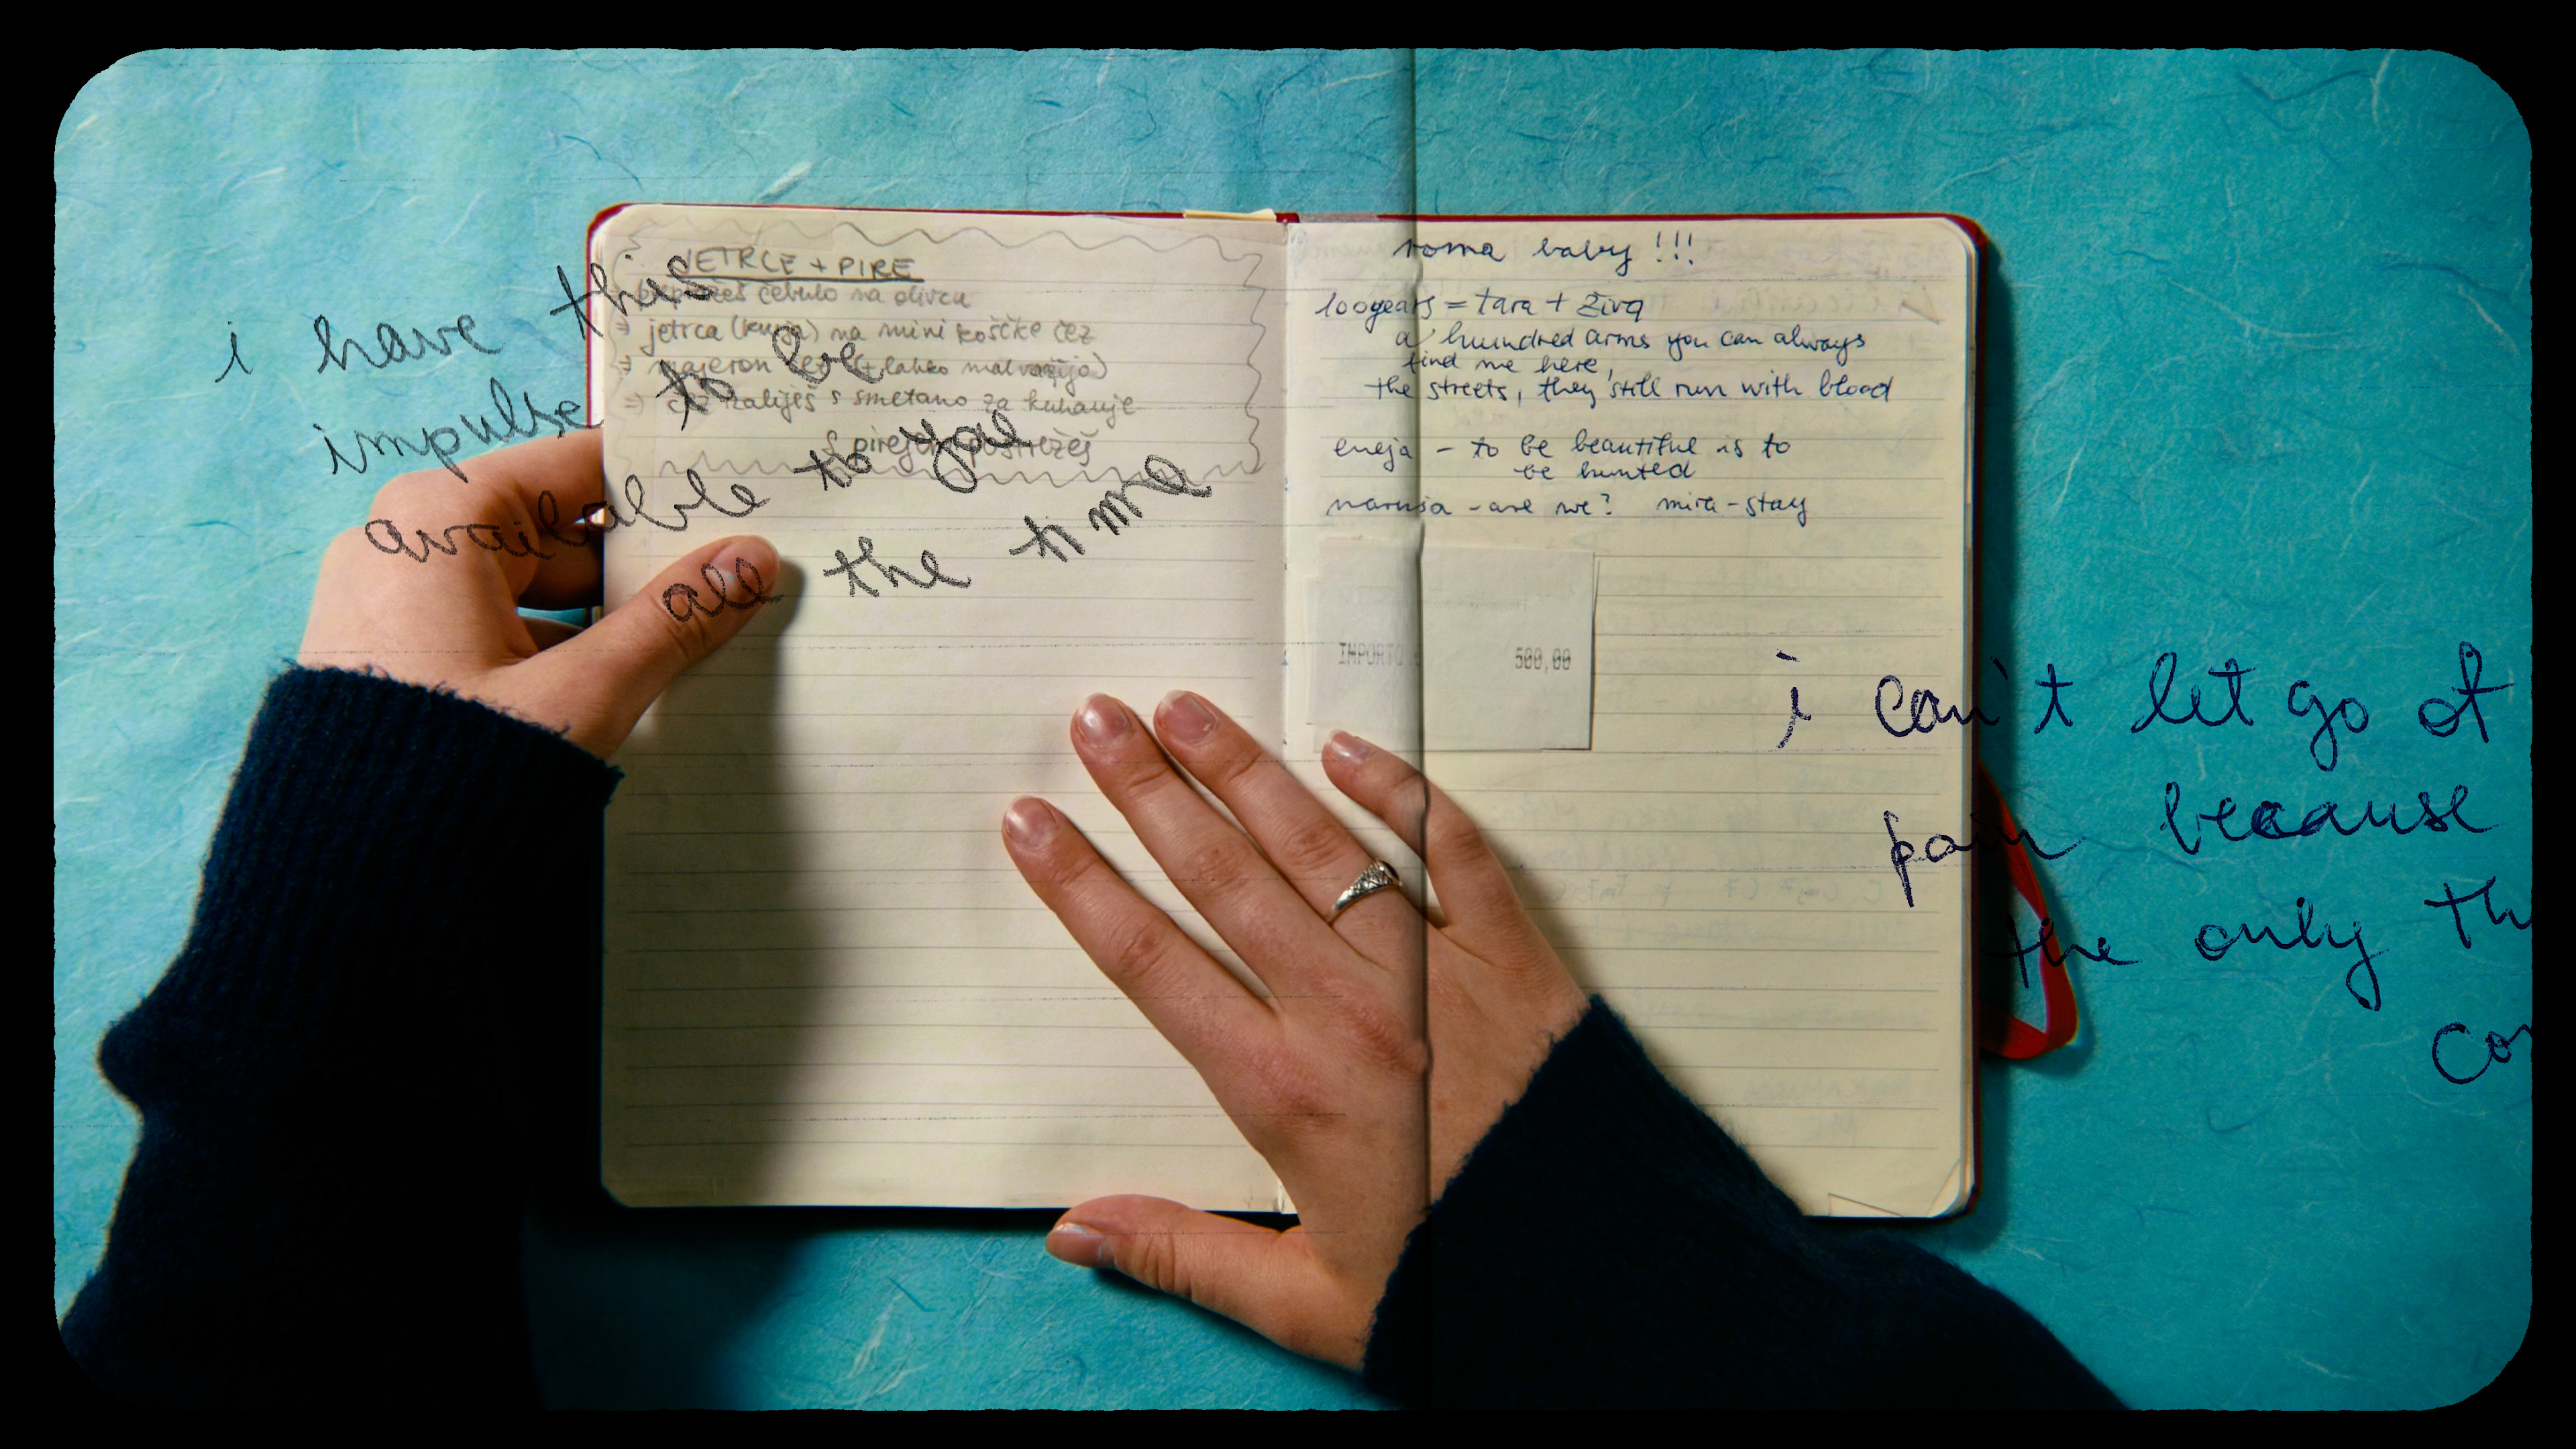 JETRCE + PIRE
čebulo na olivcu
⇒ jetrca (kurja) na mini koščke čez
⇒ majeron čez (+ lahko malvazija)
⇒ čez zaliješ s smetano za kuhanje
S pirejem postrežeš
i have this
impulse to be
available to you
all the time
roma baby !!!
100years = tara + živa
a hundred arms you can always
find me here,
the streets, they still run with blood
eneja - to be beautiful is to
be hunted
naruša - are we? mira - stay
IMPORTO 500,00
i can't let go of
pain because
the only th
co